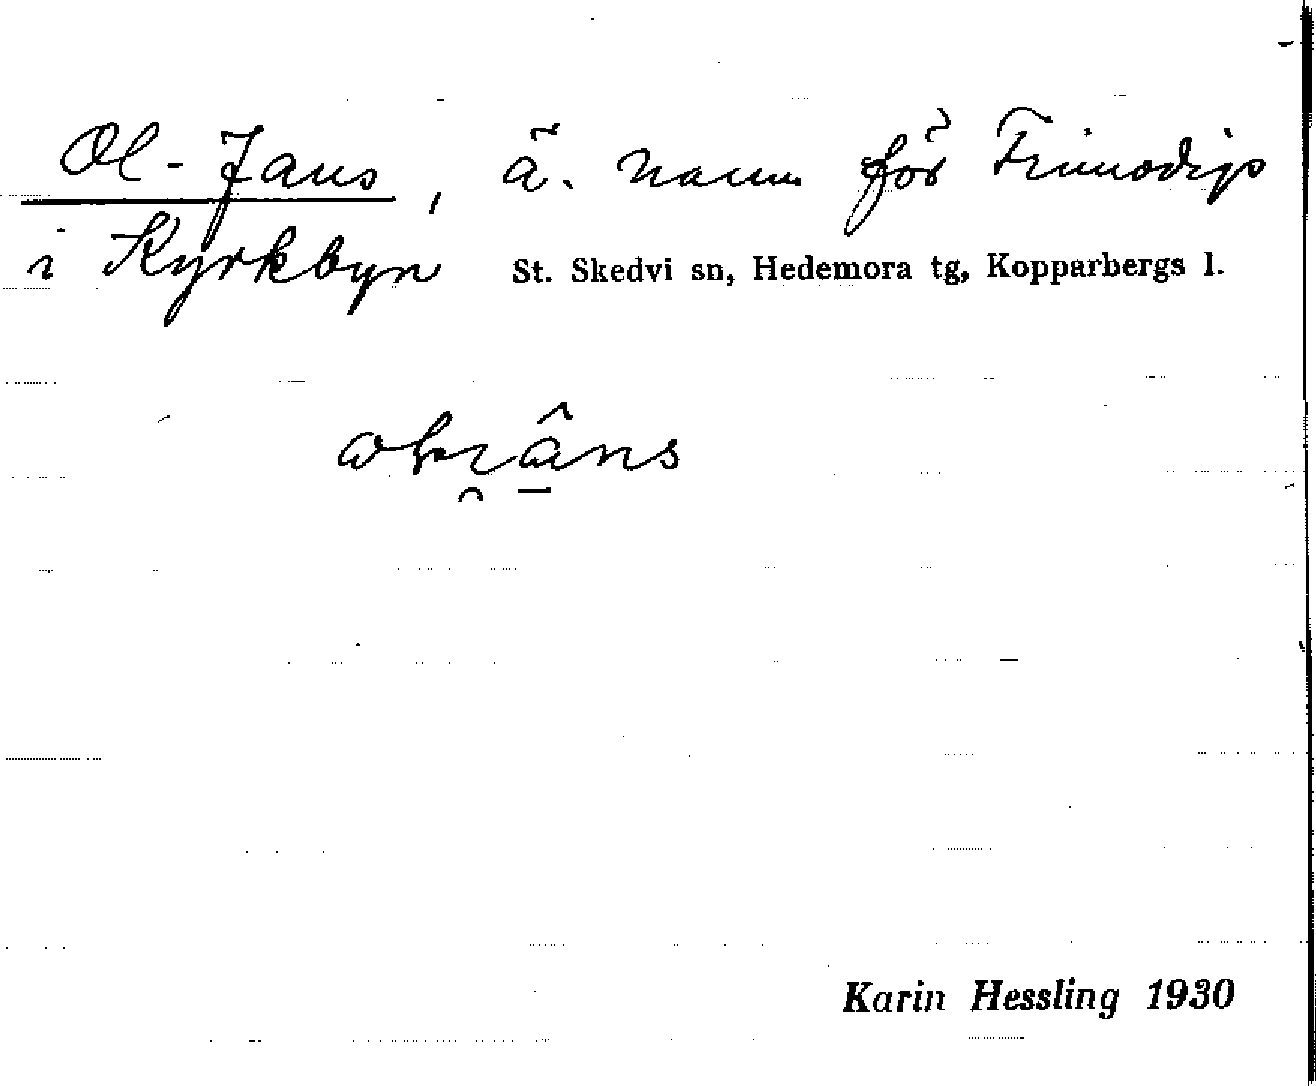 Ol-Jans, ä. namn för Frimodigs
i Kyrkbyn St. Skedvi sn, Hedemora tg, Kopparbergs l.
Karin Hessling 1930